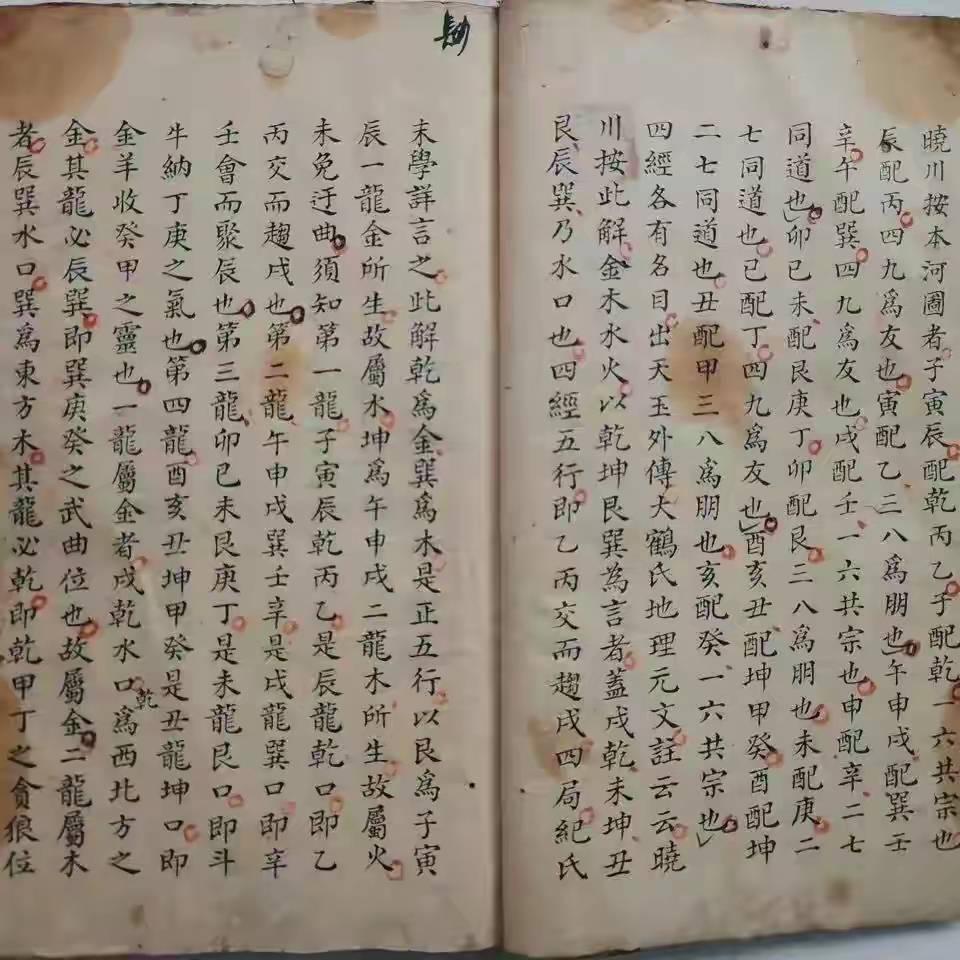 曉川按本河圖者子寅辰配乾丙乙子配乾一六共宗也
辰配丙四九為友也寅配乙三八為朋也午申戌配巽壬
辛午配巽四九為友也戌配壬一六共宗也申配辛二七
同道也卯巳未配艮庚丁卯配艮三八為朋也未配庚二
七同道也巳配丁四九為友也酉亥丑配坤甲癸酉配坤
二七同道也丑配甲三八為朋也亥配癸一六共宗也
四經各有名目出天玉外傳大鶴氏地理元文註云云曉
川按此解金木水火以乾坤艮巽為言者蓋戌乾未坤丑
艮辰巽乃水口也四經五行即乙丙交而趨戌四局紀氏
末學詳言之此解乾為金巽為木是正五行以艮為子寅
辰一龍金所生故屬水坤為午申戌二龍木所生故屬火
未免迂曲須知第一龍子寅辰乾丙乙是辰龍乾口即乙
丙交而趨戌也第二龍午申戌巽壬辛是戌龍巽口即辛
壬會而聚辰也第三龍卯巳未艮庚丁是未龍艮口即斗
牛納丁庚之氣也第四龍酉亥丑坤甲癸是丑龍坤口即
金羊收癸甲之靈也一龍屬金者戌乾水口乾為西北方之
金其龍必辰巽即巽庚癸之武曲位也故屬金二龍屬木
者辰巽水口巽為東方木其龍必乾即乾甲丁之貪狼位